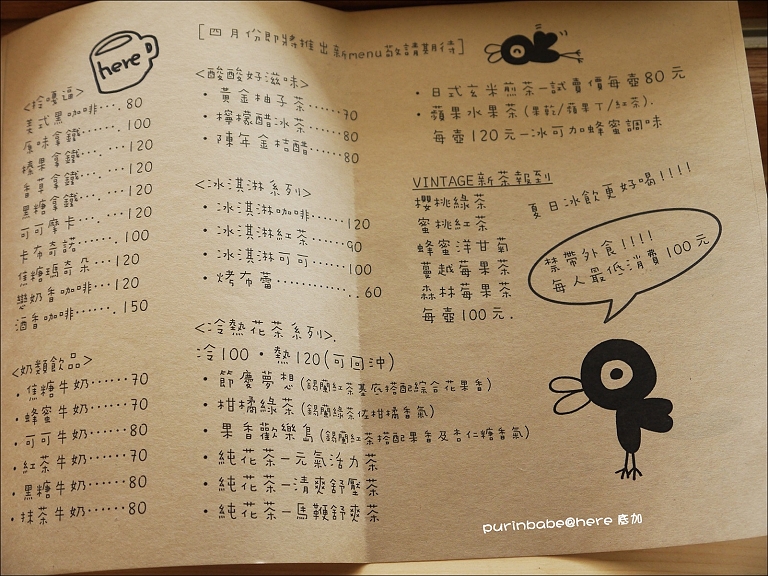 [四月份即將推出新menu敬請期待]
here
<拾嘎逼>
美式黑咖啡····80
原味拿鐵····100
榛果拿鐵····120
香草拿鐵····120
黑糖拿鐵····120
可可摩卡····120
卡布奇諾····100
焦糖瑪奇朵···120
戀奶香咖啡···120
酒香咖啡·····150
<奶類飲品>
·焦糖牛奶······70
·蜂蜜牛奶······70
·可可牛奶······80
·紅茶牛奶······70
·黑糖牛奶······80
·抹茶牛奶······80
<酸酸好滋味>
·黃金柚子茶······70
·檸檬醋冰茶······80
·陳年金桔醋······80
<冰淇淋系列>
·冰淇淋咖啡·····120
·冰淇淋紅茶·····90
·冰淇淋可可·····100
·烤布蕾·········60
<冷熱花茶系列>.
冷100·熱120(可回沖)
·節慶夢想(錫蘭紅茶基底搭配綜合花果香)
·柑橘綠茶(錫蘭綠茶佐柑橘香氣)
·果香歡樂島(錫蘭紅茶搭配果香及杏仁糖香氣)
·純花茶—元氣活力茶
·純花茶—清爽舒壓茶
·純花茶—馬鞭舒爽茶
·日式玄米煎茶—試賣價每壺80元
·蘋果水果茶(果乾/蘋果丁/紅茶).
每壺120元—冰可加蜂蜜調味
VINTAGE新茶報到
櫻桃綠茶
蜜桃紅茶
蜂蜜洋甘菊
蔓越莓果茶
森林莓果茶
每壺100元.
夏日冰飲更好喝!!!!
禁帶外食!!!!
每人最低消費100元
purinbabe@here 底加